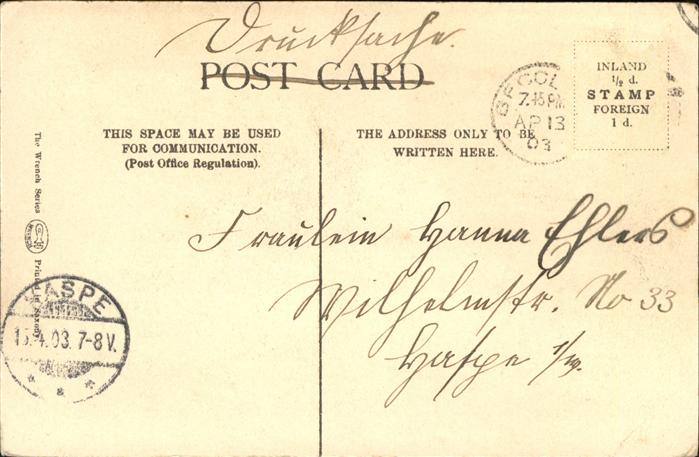 Drucksache.
POST CARD
INLAND
1/2 d.
STAMP
FOREIGN
1 d.
7.45 PM
AP 13
03
THIS SPACE MAY BE USED
FOR COMMUNICATION.
(Post Office Regulation).
THE ADDRESS ONLY TO BE
WRITTEN HERE.
Fräulein Hanna Ehlers
Wilhelmstr. No 33
Haspe i/W.
The Wrench Series
Printed in Saxony
HASPE
15.4.03. 7-8 V.